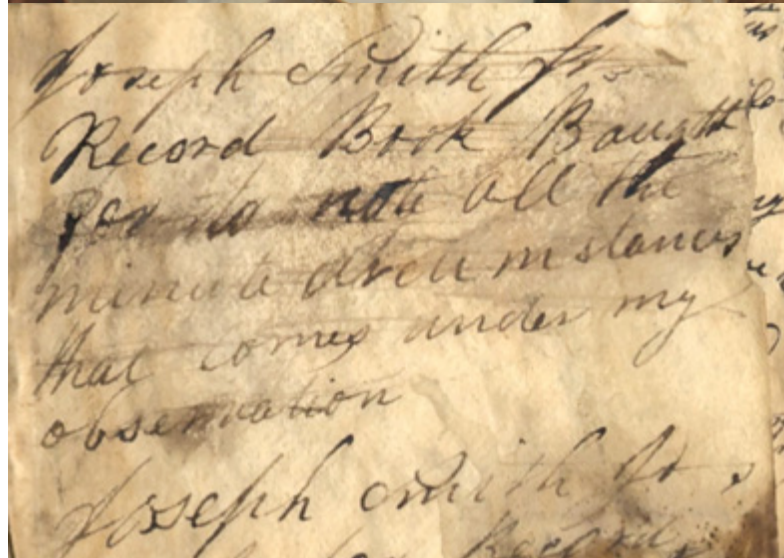 Joseph Smith Jr.
Record Book Baught
for to note all the
minute circumstances
that comes under my
observation
Joseph Smith Jr
Record